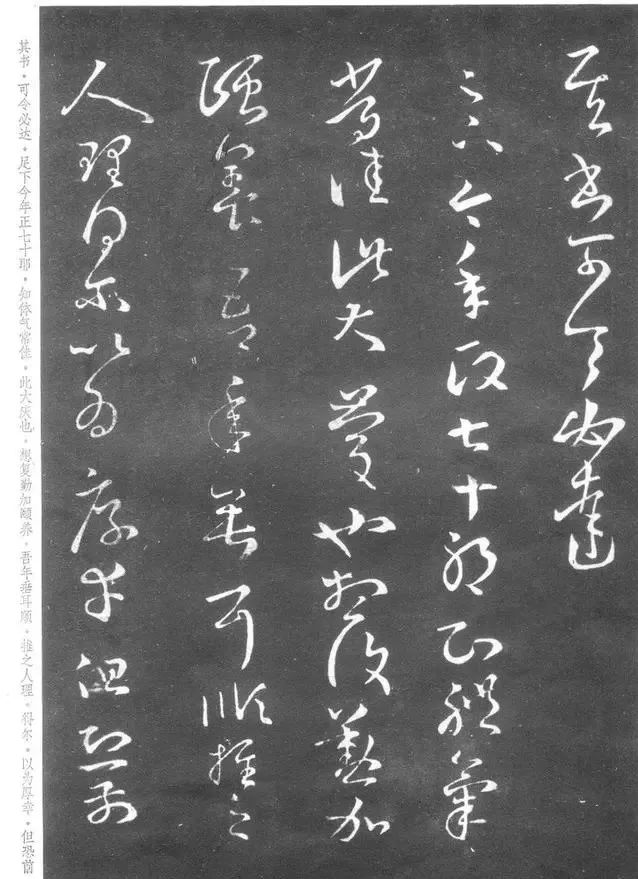 其書可令必達
足下今年政七十耶知體氣
常佳此大慶也想復懃加
頤養吾年垂耳順推之
人理得爾以為厚幸但恐前
其书·可令必达·足下今年正七十耶·知体气常佳·此大庆也·想复勤加颐养·吾年垂耳顺·推之人理·得尔·以为厚幸·但恐前